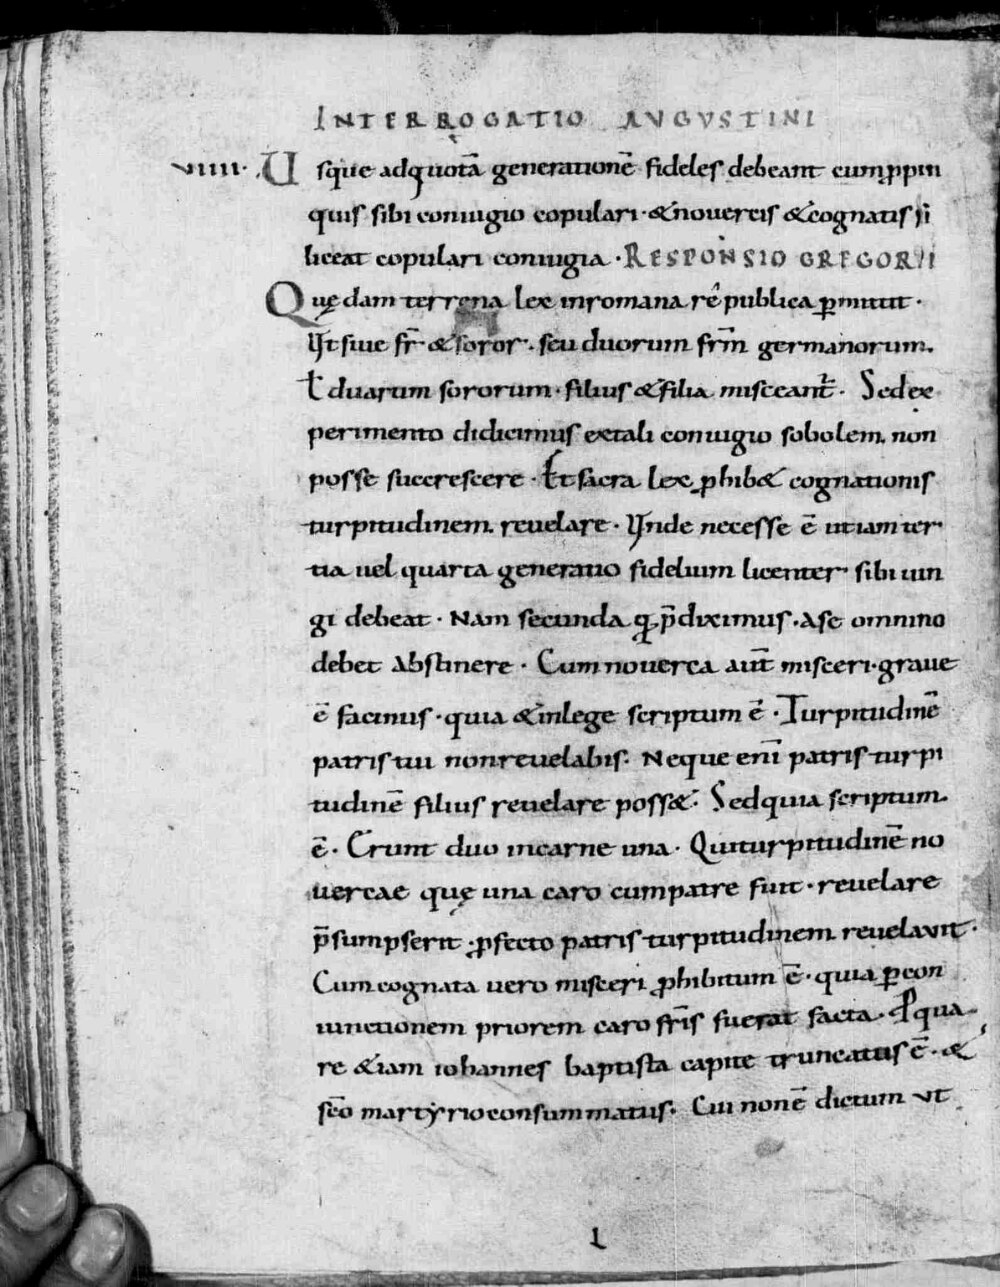 INTERROGATIO AUGUSTINI
VIIII. Usque adquotā generationē fideles debeant cum ppin
quis sibi coniugio copulari · & novercis & cognatis si
liceat copulari coniugia · RESPONSIO GREGORII
Quędam terrena lex in romana rē publica ꝑmittit ·
Ut siue fr̄ & soror · seu duorum fr̄m germanorum.
ł duarum sororum · filius & filia misceant̄ · Sed ex
perimento didicimus extali coniugio sobolem non
posse succrescere · Et sacra lex ꝓhib& cognationis
turpitudinem revelare · Unde necesse ē ut iam ter
tia uel quarta generatio fidelium licenter sibi iun
gi debeat · Nam secunda quā p̄diximus · a se omnino
debet abstinere · Cum noverca aūt misceri · grave
ē facinus · quia & in lege scriptum ē · Turpitudinē
patris tui non revelabis. Neque enī patris turpi
tudinē filius revelare poss& · Sed quia scriptum
ē · Erunt duo in carne una · Qui turpitudinē no
vercae quę una caro cum patre fuit · revelare
p̄sumpserit · ꝓfecto patris turpitudinem revelavit ·
Cum cognata vero misceri ꝓhibitum ē · quia ꝑ con
iunctionem priorem caro fr̄is fuerat facta · Ꝓ qua
re &iam iohannes baptista capite truncatus ē · &
sc̄o martyrio consummatus · Cui non ē dictum ut
L